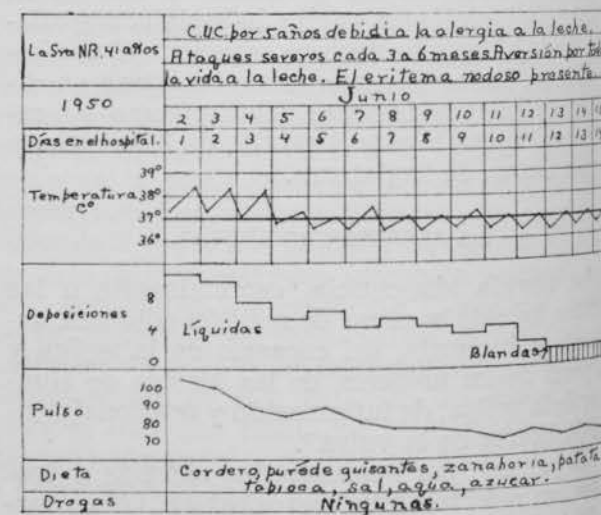 La Sra NR, 41 años
C.U.C. por 5 años debidi a la alergia a la leche.
Ataques severos cada 3 a 6 meses Aversión por
la vida a la leche. El eritema nodoso presente.
1950
Junio
2 3 4 5 6 7 8 9 10 11 12 13 14
Días en el hospital. 1 2 3 4 5 6 7 8 9 10 11 12 13
Temperatura C°
39°
38°
37°
36°
Deposiciones
8
4
0
Líquidas
Blandas
Pulso
100
90
80
70
Dieta
Cordero, puré de guisantes, zanahoria, patata
tapioca, sal, agua, azucar.
Drogas
Ningunas.